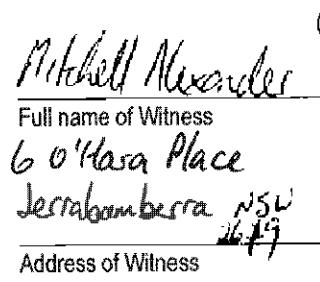 Mitchell Alexander
Full name of Witness
6 O'Hara Place
Jerrabomberra NSW
2619
Address of Witness